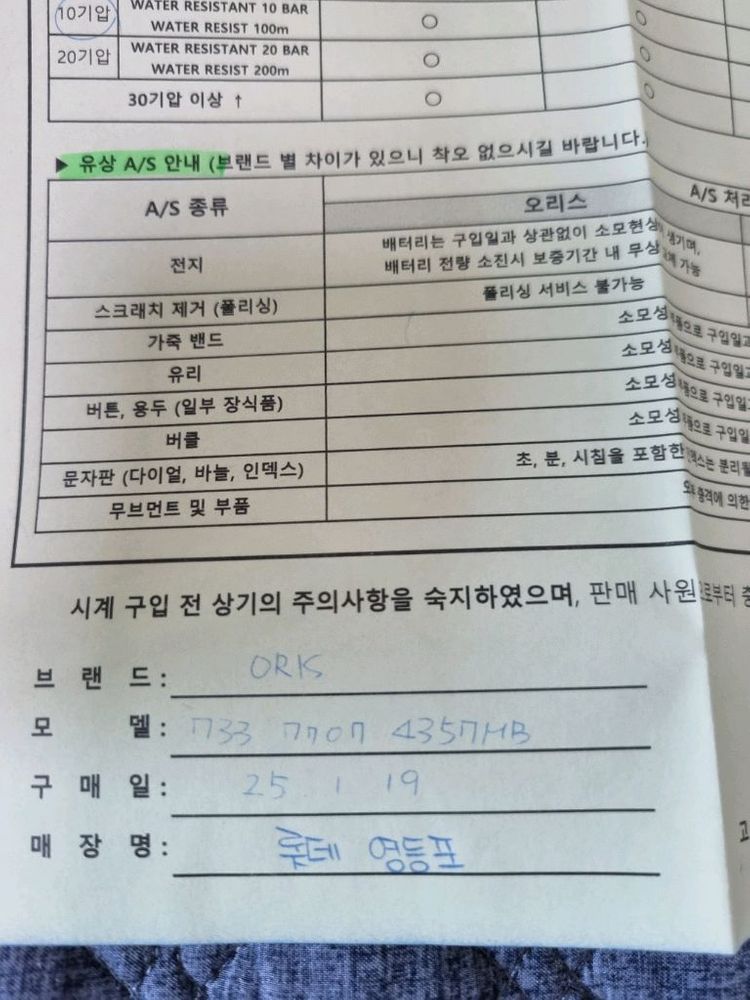 10기압 WATER RESISTANT 10 BAR
WATER RESIST 100m ○ ○
20기압 WATER RESISTANT 20 BAR
WATER RESIST 200m ○ ○
30기압 이상 ↑ ○ ○
▶ 유상 A/S 안내 (브랜드 별 차이가 있으니 착오 없으시길 바랍니다.
A/S 종류 A/S 처리
오리스
전지 배터리는 구입일과 상관없이 소모현상이 생기며,
배터리 전량 소진시 보증기간 내 무상 가능
스크래치 제거 (폴리싱) 폴리싱 서비스 불가능
가죽 밴드 소모성 부품으로 구입일과
유리 소모성 부품으로 구입일과
버튼, 용두 (일부 장식품) 소모성 부품으로 구입일과
버클 소모성 부품으로 구입일
문자판 (다이얼, 바늘, 인덱스) 초, 분, 시침을 포함한 인덱스는 분리될
무브먼트 및 부품 외부 충격에 의한
시계 구입 전 상기의 주의사항을 숙지하였으며, 판매 사원으로부터 충
브 랜 드 : ORIS
모 델 : 733 7707 4357MB
구 매 일 : 25. 1 19
매 장 명 : 롯데 영등포
고